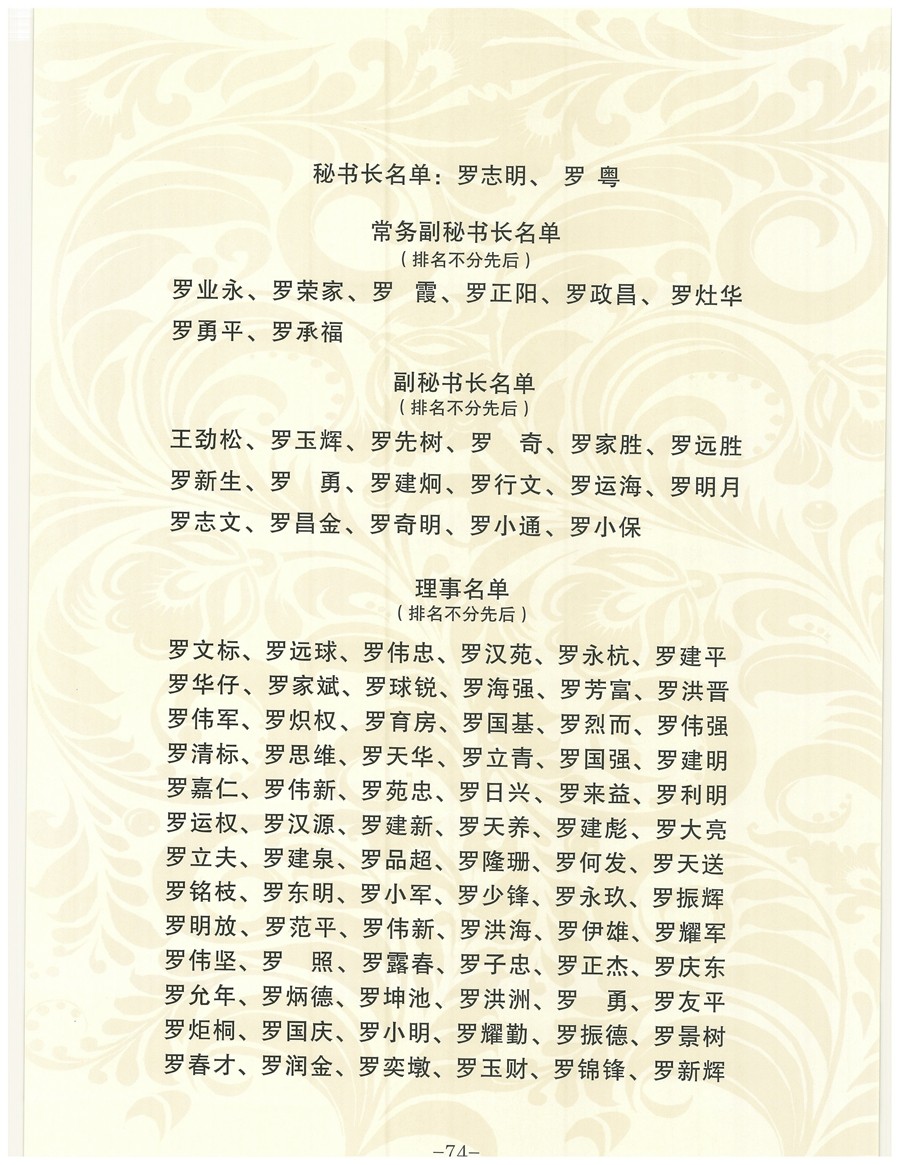 秘书长名单：罗志明、 罗 粤
常务副秘书长名单
（排名不分先后）
罗业永、罗荣家、罗　霞、罗正阳、罗政昌、罗灶华
罗勇平、罗承福
副秘书长名单
（排名不分先后）
王劲松、罗玉辉、罗先树、罗　奇、罗家胜、罗远胜
罗新生、罗　勇、罗建炯、罗行文、罗运海、罗明月
罗志文、罗昌金、罗奇明、罗小通、罗小保
理事名单
（排名不分先后）
罗文标、罗远球、罗伟忠、罗汉苑、罗永杭、罗建平
罗华仔、罗家斌、罗球锐、罗海强、罗芳富、罗洪晋
罗伟军、罗炽权、罗育房、罗国基、罗烈而、罗伟强
罗清标、罗思维、罗天华、罗立青、罗国强、罗建明
罗嘉仁、罗伟新、罗苑忠、罗日兴、罗来益、罗利明
罗运权、罗汉源、罗建新、罗天养、罗建彪、罗大亮
罗立夫、罗建泉、罗品超、罗隆珊、罗何发、罗天送
罗铭枝、罗东明、罗小军、罗少锋、罗永玖、罗振辉
罗明放、罗范平、罗伟新、罗洪海、罗伊雄、罗耀军
罗伟坚、罗　照、罗露春、罗子忠、罗正杰、罗庆东
罗允年、罗炳德、罗坤池、罗洪洲、罗　勇、罗友平
罗炬桐、罗国庆、罗小明、罗耀勤、罗振德、罗景树
罗春才、罗润金、罗奕墩、罗玉财、罗锦锋、罗新辉
–74–